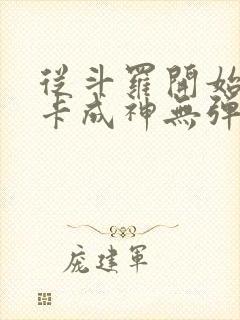 從斗羅開始
卡成神無彈
庞建軍